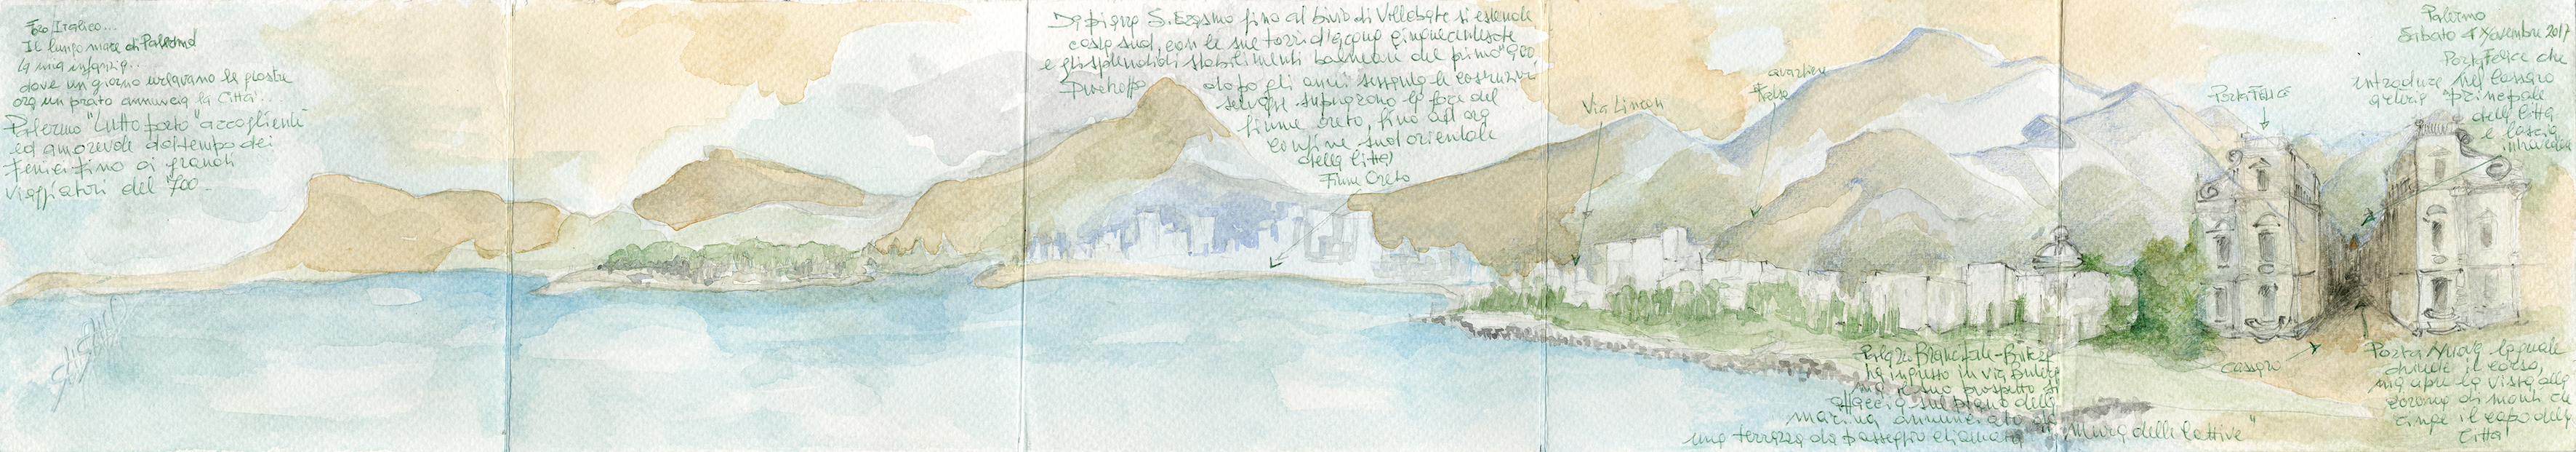 Foro Italico...
Il lungo mare di Palermo
la mia infanzia..
dove un giorno urlavano le giostre
ora un prato annuncia la Città...
Palermo "tutto porto" accogliente
ed amorevole dal tempo dei
Fenici fino ai grandi
viaggiatori del '700.
Da piazza S. Erasmo fino al bivio di Villabate si estende
costa sud, con le sue torri d'acqua cinquecentesche
e gli splendidi stabilimenti balneari del primo '900,
Purtroppo dopo gli anni sessanta le costruzioni
selvagge superarono la foce del
fiume Oreto, fino ad ora
confine sud orientale
della città
Fiume Oreto
Via Lincon
quartiere
Porta Felice
Palermo
Sabato 4 Novembre 2017
Porta Felice che
introduce nel Cassaro
arteria principale
della città
e lascia
Palazzo Branciforte-Butera
ha ingresso in via Butera
ma il suo prospetto si
affaccia sul piano della
marina annunciato da
una terrazza da passeggio chiamata "Mura delle Cattive"
Cassaro
Porta Nuova la quale
chiude il corso,
ma apre la vista alla
corona di monti che
cinge il capo della
Città